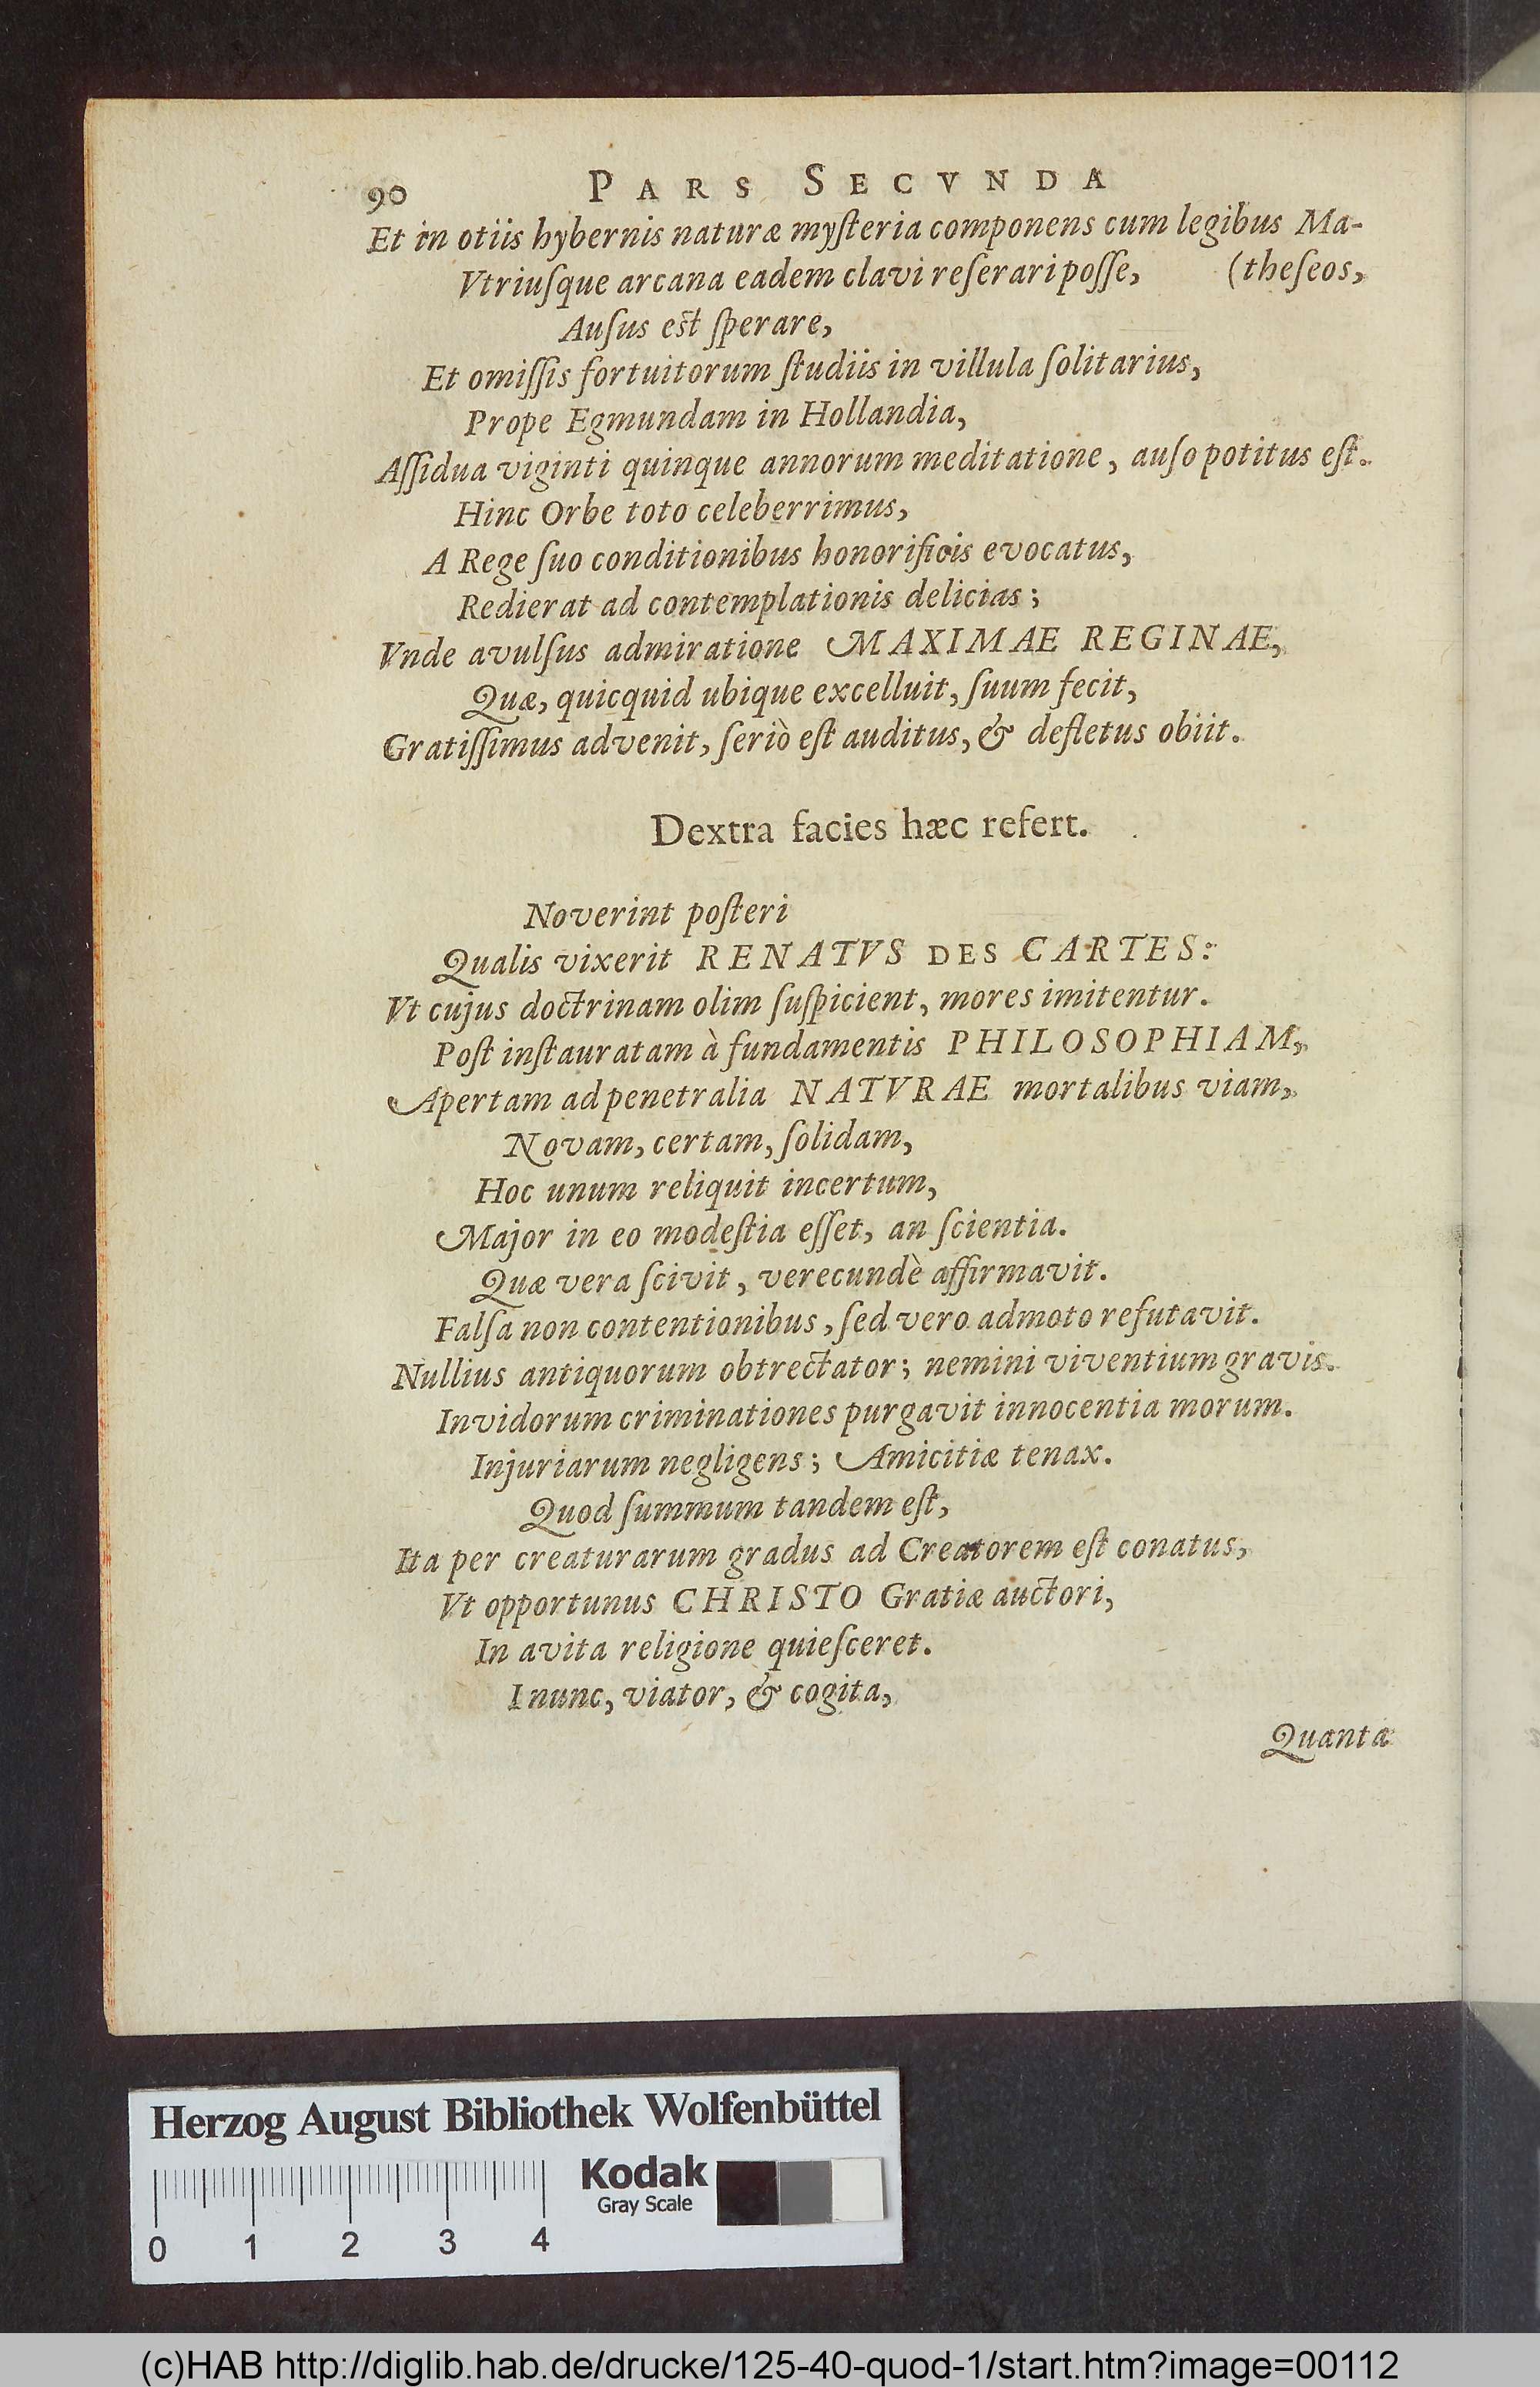 90 PARS SECVNDA
Et in otiis hybernis naturæ myſteria componens cum legibus Ma-
Vtriuſque arcana eadem clavi reſerari poſſe, (theſeos,
Auſus eſt ſperare,
Et omiſſis fortuitorum ſtudiis in villula ſolitarius,
Prope Egmundam in Hollandia,
Aſſidua viginti quinque annorum meditatione, auſo potitus eſt.
Hinc Orbe toto celeberrimus,
A Rege ſuo conditionibus honorificis evocatus,
Redierat ad contemplationis delicias;
Vnde avulſus admiratione MAXIMAE REGINAE,
Quæ, quicquid ubique excelluit, ſuum fecit,
Gratiſſimus advenit, ſeriò eſt auditus, & defletus obiit.
Dextra facies hæc refert.
Noverint poſteri
Qualis vixerit RENATVS DES CARTES:
Vt cujus doctrinam olim ſuſpicient, mores imitentur.
Poſt inſtauratam à fundamentis PHILOSOPHIAM,
Apertam ad penetralia NATVRAE mortalibus viam,
Novam, certam, ſolidam,
Hoc unum reliquit incertum,
Major in eo modeſtia eſſet, an ſcientia.
Quæ vera ſcivit, verecundè affirmavit.
Falſa non contentionibus, ſed vero admoto refutavit.
Nullius antiquorum obtrectator; nemini viventium gravis.
Invidorum criminationes purgavit innocentia morum.
Injuriarum negligens; Amicitiæ tenax.
Quod ſummum tandem eſt,
Ita per creaturarum gradus ad Creatorem eſt conatus,
Vt opportunus CHRISTO Gratiæ auctori,
In avita religione quieſceret.
I nunc, viator, & cogita,
Quanta
Herzog August Bibliothek Wolfenbüttel
Kodak
Gray Scale
0 1 2 3 4
(c)HAB http://diglib.hab.de/drucke/125-40-quod-1/start.htm?image=00112